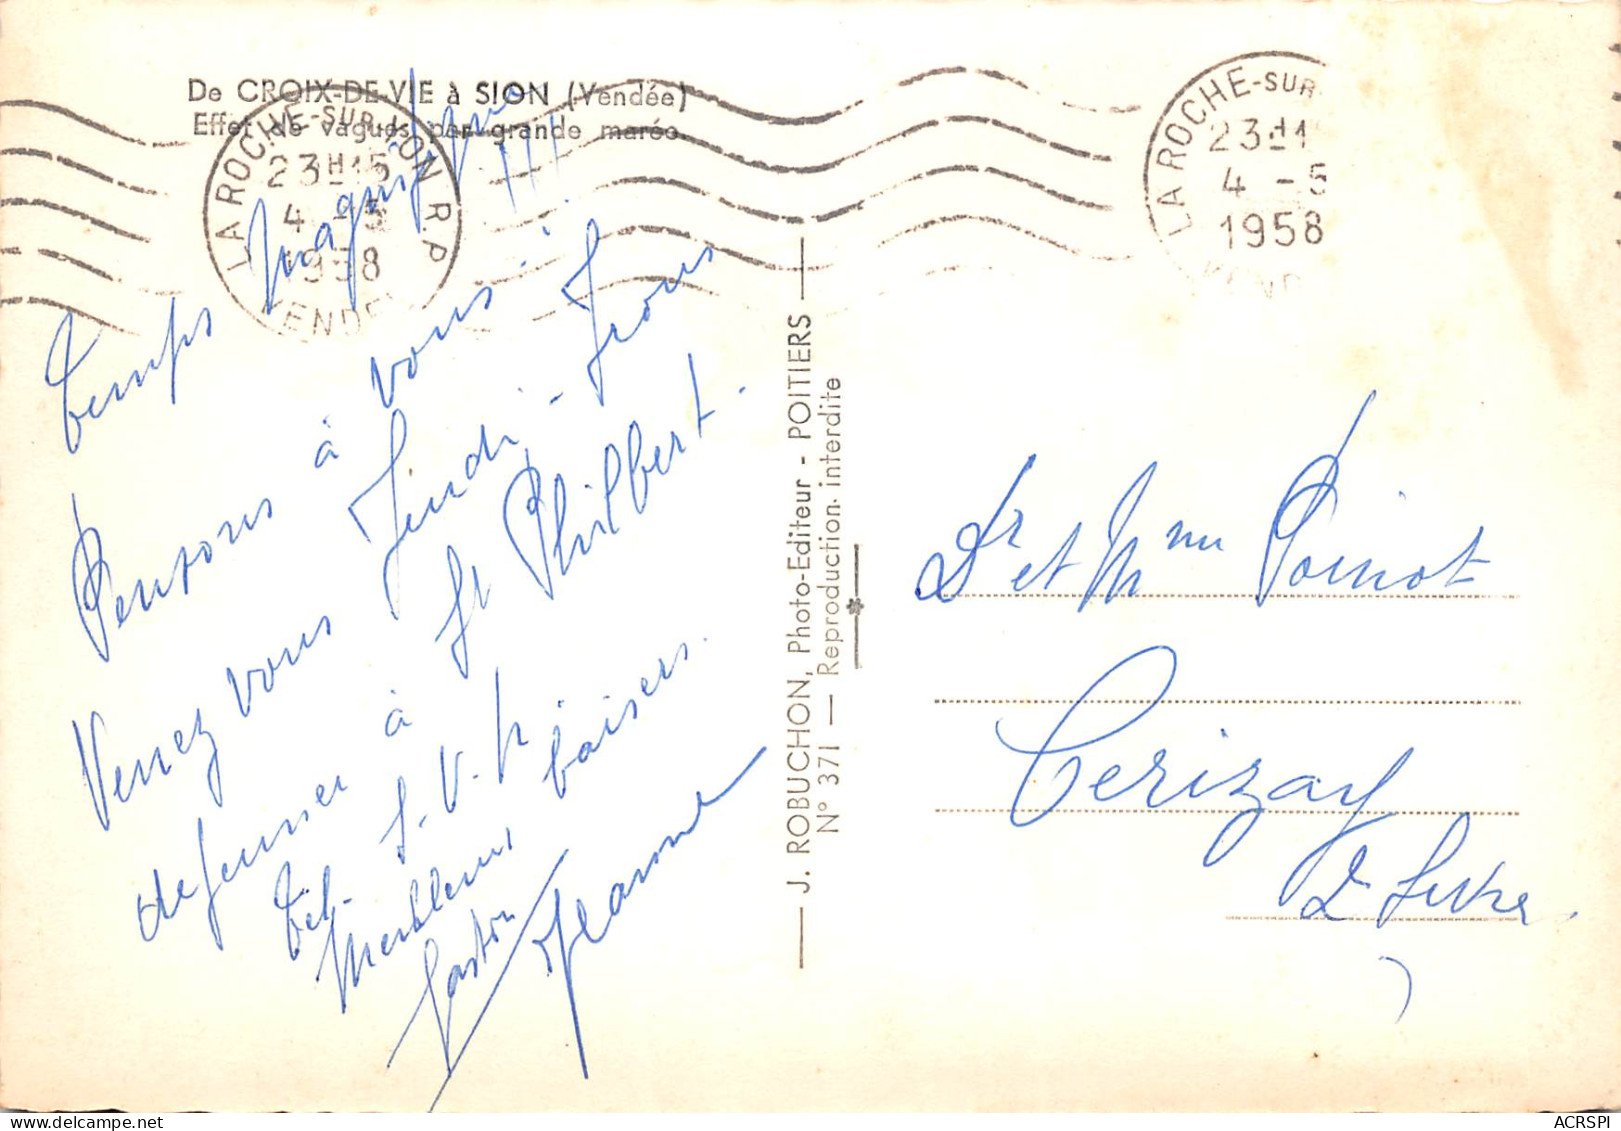 De CROIX-DE-VIE à SION (Vendée)
Effet de vagues par grande marée.
LA ROCHE-SUR-YON R.P.
23H15
4 -5
1958
VENDEE
LA ROCHE-SUR
23H1
4 -5
1958
VEND
Temps magnifique !!!
Pensons à vous !
Venez vous Jeudi - Nous
déjeuner à St Philbert.
Tel - S.V.P.
Meilleurs baisers.
Gaston Jeanne
J. ROBUCHON, Photo-Editeur - POITIERS
N° 371 — Reproduction interdite
Dr et Mme Poinot
Cerizay
2 Sèvres
ACRSPI